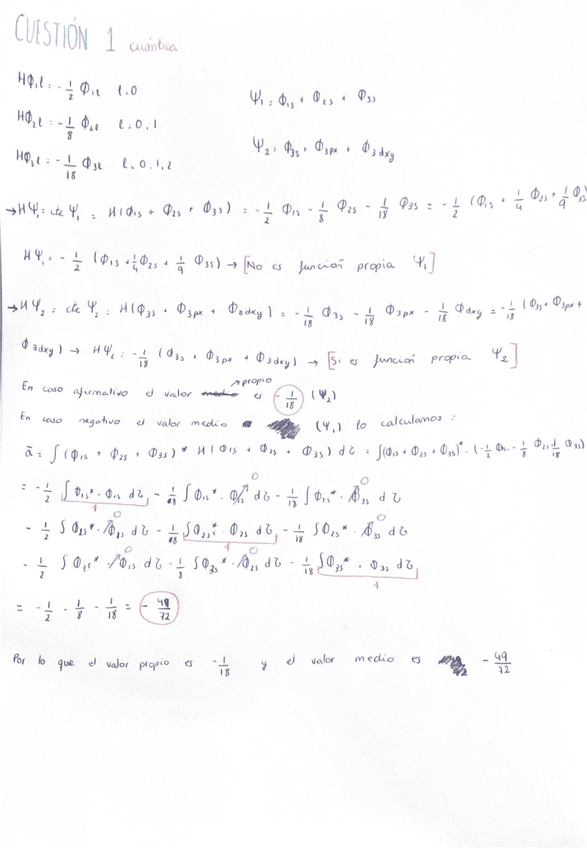 CUESTIÓN 1 cuántica
HΦ₁ℓ = -1/2 Φ₁ℓ ℓ=0
HΦ₂ℓ = -1/8 Φ₂ℓ ℓ=0,1
HΦ₃ℓ = -1/18 Φ₃ℓ ℓ=0,1,2
Ψ₁ = Φ1s + Φ2s + Φ3s
Ψ₂ = Φ3s + Φ3px + Φ3dxy
→ HΨ₁ = cte Ψ₁ = H(Φ1s + Φ2s + Φ3s) = -1/2 Φ1s - 1/8 Φ2s - 1/18 Φ3s = -1/2 (Φ1s + 1/4 Φ2s + 1/9 Φ3s)
HΨ₁ = -1/2 (Φ1s + 1/4 Φ2s + 1/9 Φ3s) → [No es función propia Ψ₁]
→ HΨ₂ = cte Ψ₂ = H(Φ3s + Φ3px + Φ3dxy) = -1/18 Φ3s - 1/18 Φ3px - 1/18 Φdxy = -1/18 (Φ3s + Φ3px +
Φ3dxy) → HΨ₂ = -1/18 (Φ3s + Φ3px + Φ3dxy) → [Si es función propia Ψ₂]
En caso afirmativo el valor propio es -1/18 (Ψ₂)
En caso negativo el valor medio (Ψ₁) lo calculamos:
ā = ∫(Φ1s + Φ2s + Φ3s)* H(Φ1s + Φ2s + Φ3s) dζ = ∫(Φ1s + Φ2s + Φ3s)* · (-1/2 Φ1s - 1/8 Φ2s - 1/18 Φ3s)
= -1/2 ∫Φ1s* · Φ1s dζ - 1/18 ∫Φ1s* · Φ2s dζ - 1/18 ∫Φ1s* · Φ3s dζ
1 0 0
- 1/2 ∫Φ2s* · Φ1s dζ - 1/18 ∫Φ2s* · Φ2s dζ - 1/18 ∫Φ2s* · Φ3s dζ
0 1 0
- 1/2 ∫Φ3s* · Φ1s dζ - 1/8 ∫Φ3s* · Φ2s dζ - 1/18 ∫Φ3s* · Φ3s dζ
0 0 1
= -1/2 - 1/8 - 1/18 = -49/72
Por lo que el valor propio es -1/18 y el valor medio es -49/72